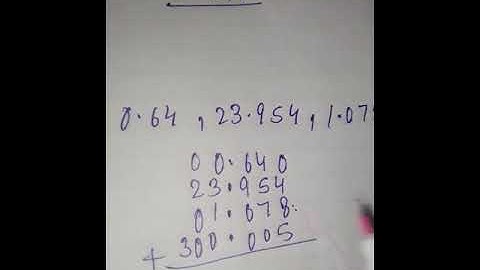 0.64 , 23.954 , 1.078
00.640
23.954
01.078
+ 300.005